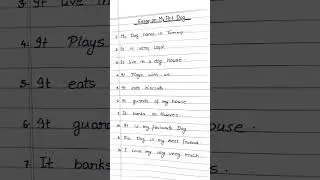 3. It live in
4. It Plays
5. It eats
6. It guard
house.
7. It banks
Essay on My Pet Dog
1. My Dog name is Tommy
2. It is very Loyal
3. It live in a dog house
4. It Plays with us
5. It eats biscuits
6. It guards of my house
7. It banks at thieves
8. It is my favourite Dog
9. The Dog is my best friend
10. I love my dog very much